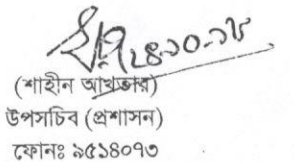 ২৪-১০-১৮
(শাহীন আখতার)
উপসচিব (প্রশাসন)
ফোনঃ ৯৫১৪০৭৩